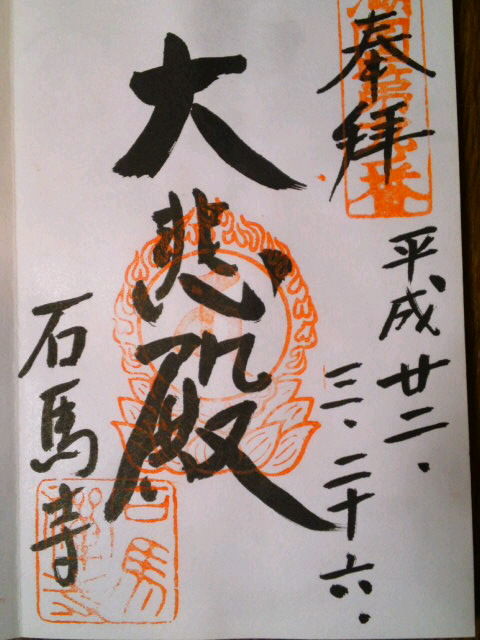 奉拝
平成廿二.
三.二十六.
大悲殿
石馬寺
石馬